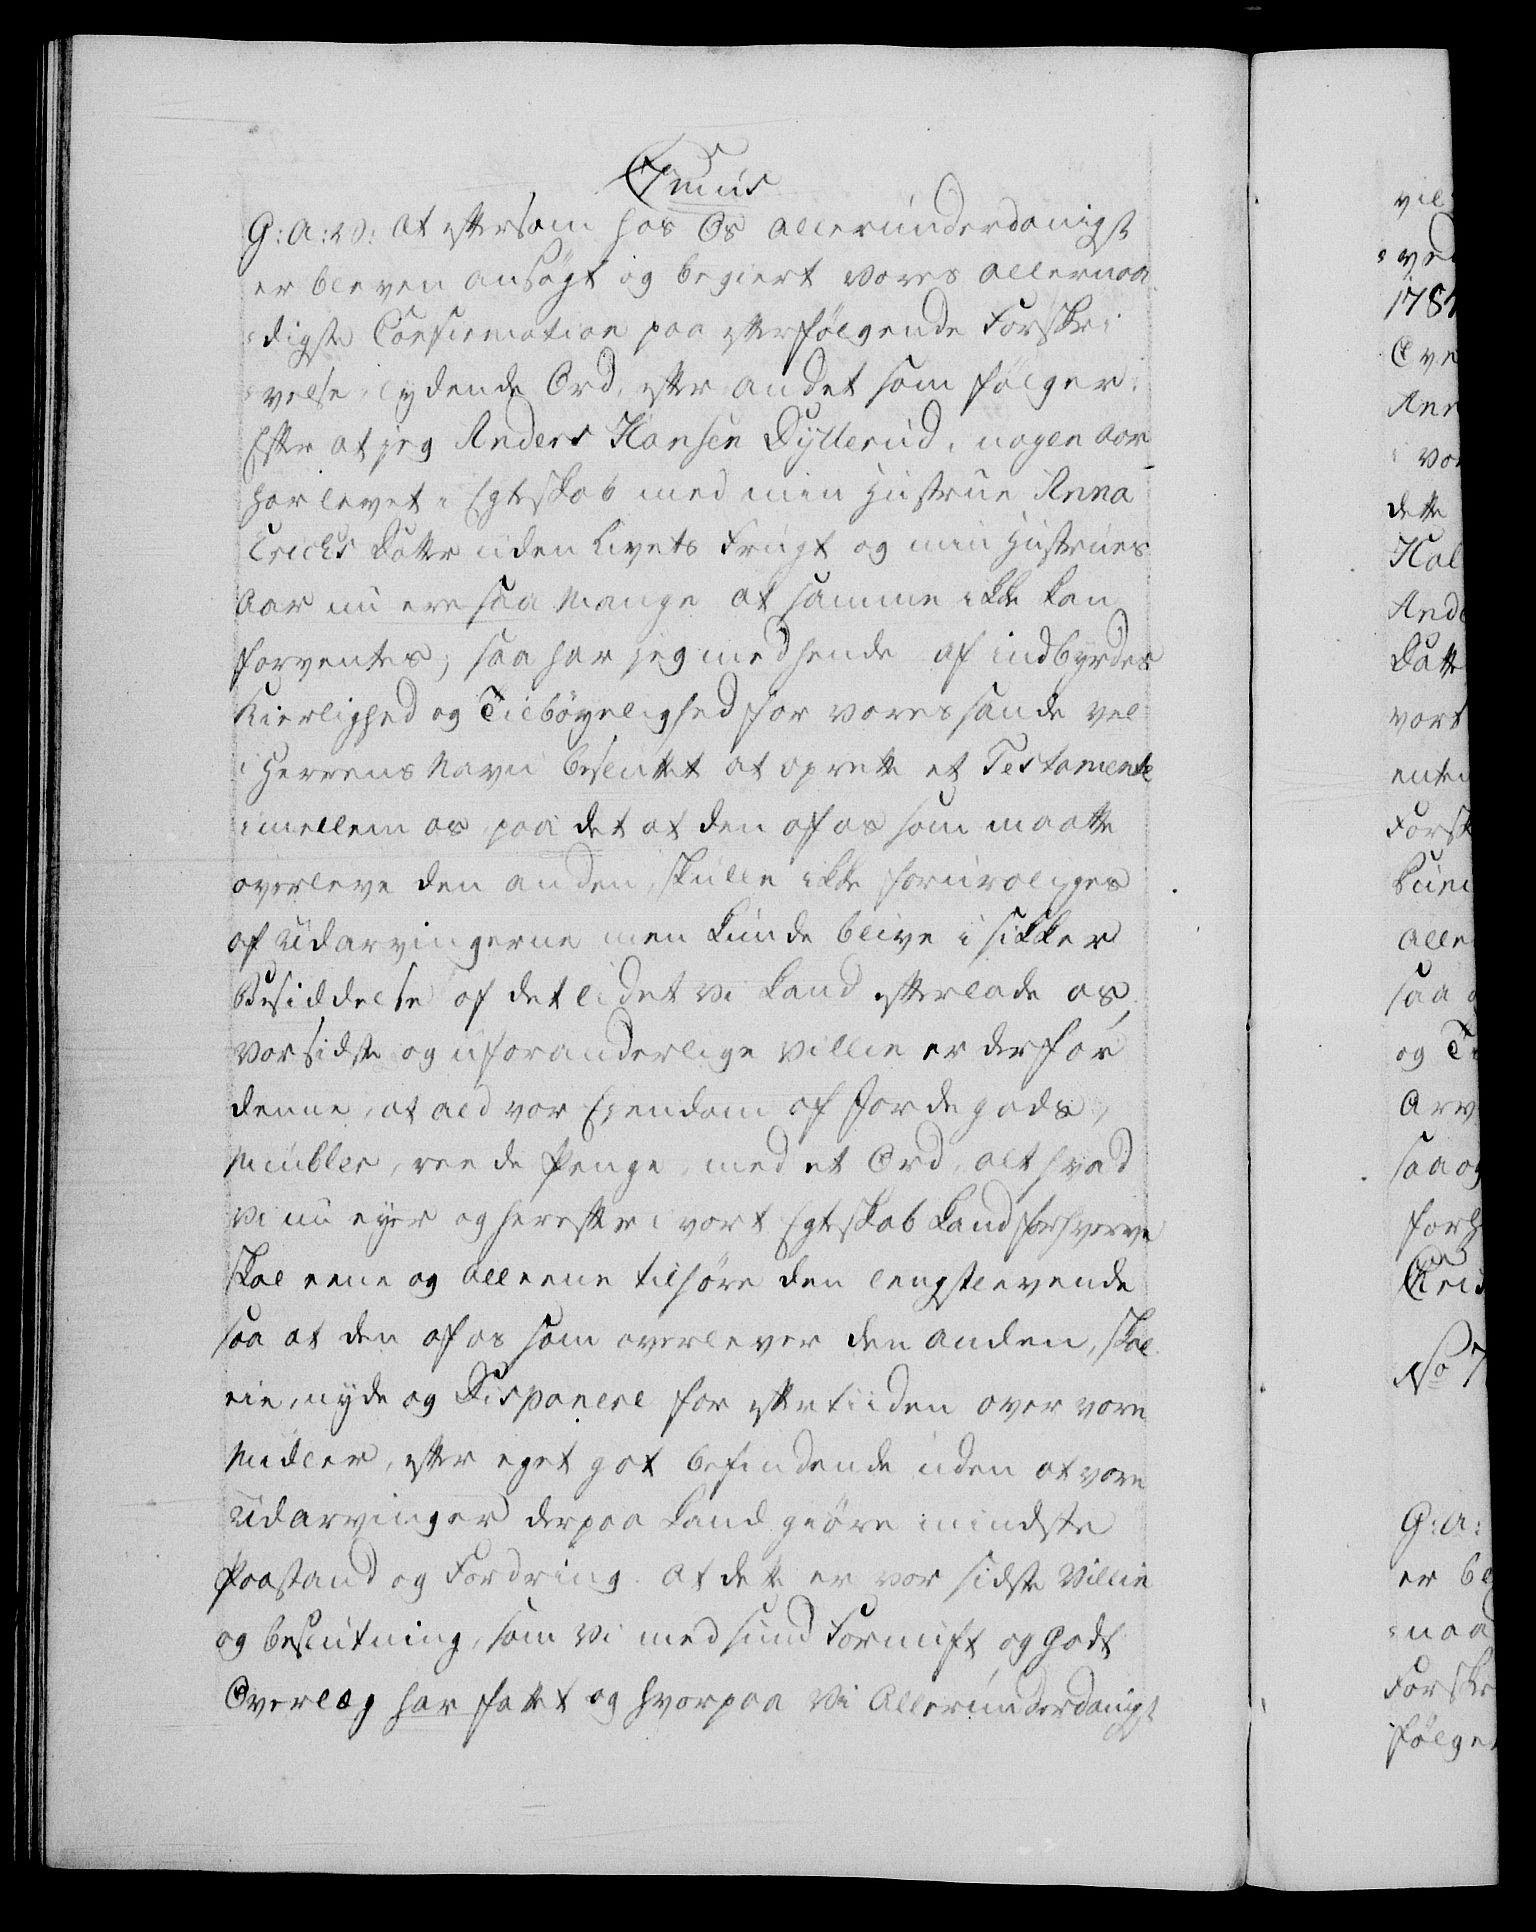 G: A: V: At eftersom hos Os allerunderdanigst
er bleven ansøgt og begiert vores allernaa¬
digste Confirmation paa efterfølgende Forskri¬
velse, lydende Ord efter andet som følger:
Efter at jeg Anders Hansen Dyllerud, i nogen Aar
har levet i Egteskab med min Hustrue Anna
Erichs Datter uden Livets Frugt og min Hustrues
Aar nu ere saa mange at samme ikke kan
forventes; saa har jeg med hende af indbyrdes
Kierlighed og Tilbøyelighed for vores sande vel
i Herrens Navn besluttet at oprette et Testamente
imellem os paa det at den af os som maatte
overleve den anden, skulle ikke foruroliges
af Udarvingerne men kunde blive i sikker
Besiddelse af det lidet vi kand efterlade os,
vor sidste og uforanderlige villie er derfor
denne, at ald vor Ejendom af Jordegods,
Meubler, reede Penge, med et Ord, alt hvad
vi nu eyer og herefter i vort Egteskab kand forhverve
skal eene og alleene tilhøre den lengstlevende
saa at den af os som overlever den anden, skal
eie, nyde og Disponere for eftertiiden over vore
Midler, efter eget got befindende uden at vore
Udarvinger derpaa kand giøre mindste
Paastand og Fordring. At dette er vor sidste Villie
og beslutning, som vi med sund Fornuft og Godt
Overlæg har fattet og hvorpaa vi Allerunderdanigst
vil
1781
Ann
dette
Hal
Ande
Datte
vort
Forsk
Alle
saa
og Ti
Arv
saa og
forh
No 7
G: A:
er ble
naa
Forskr
følge